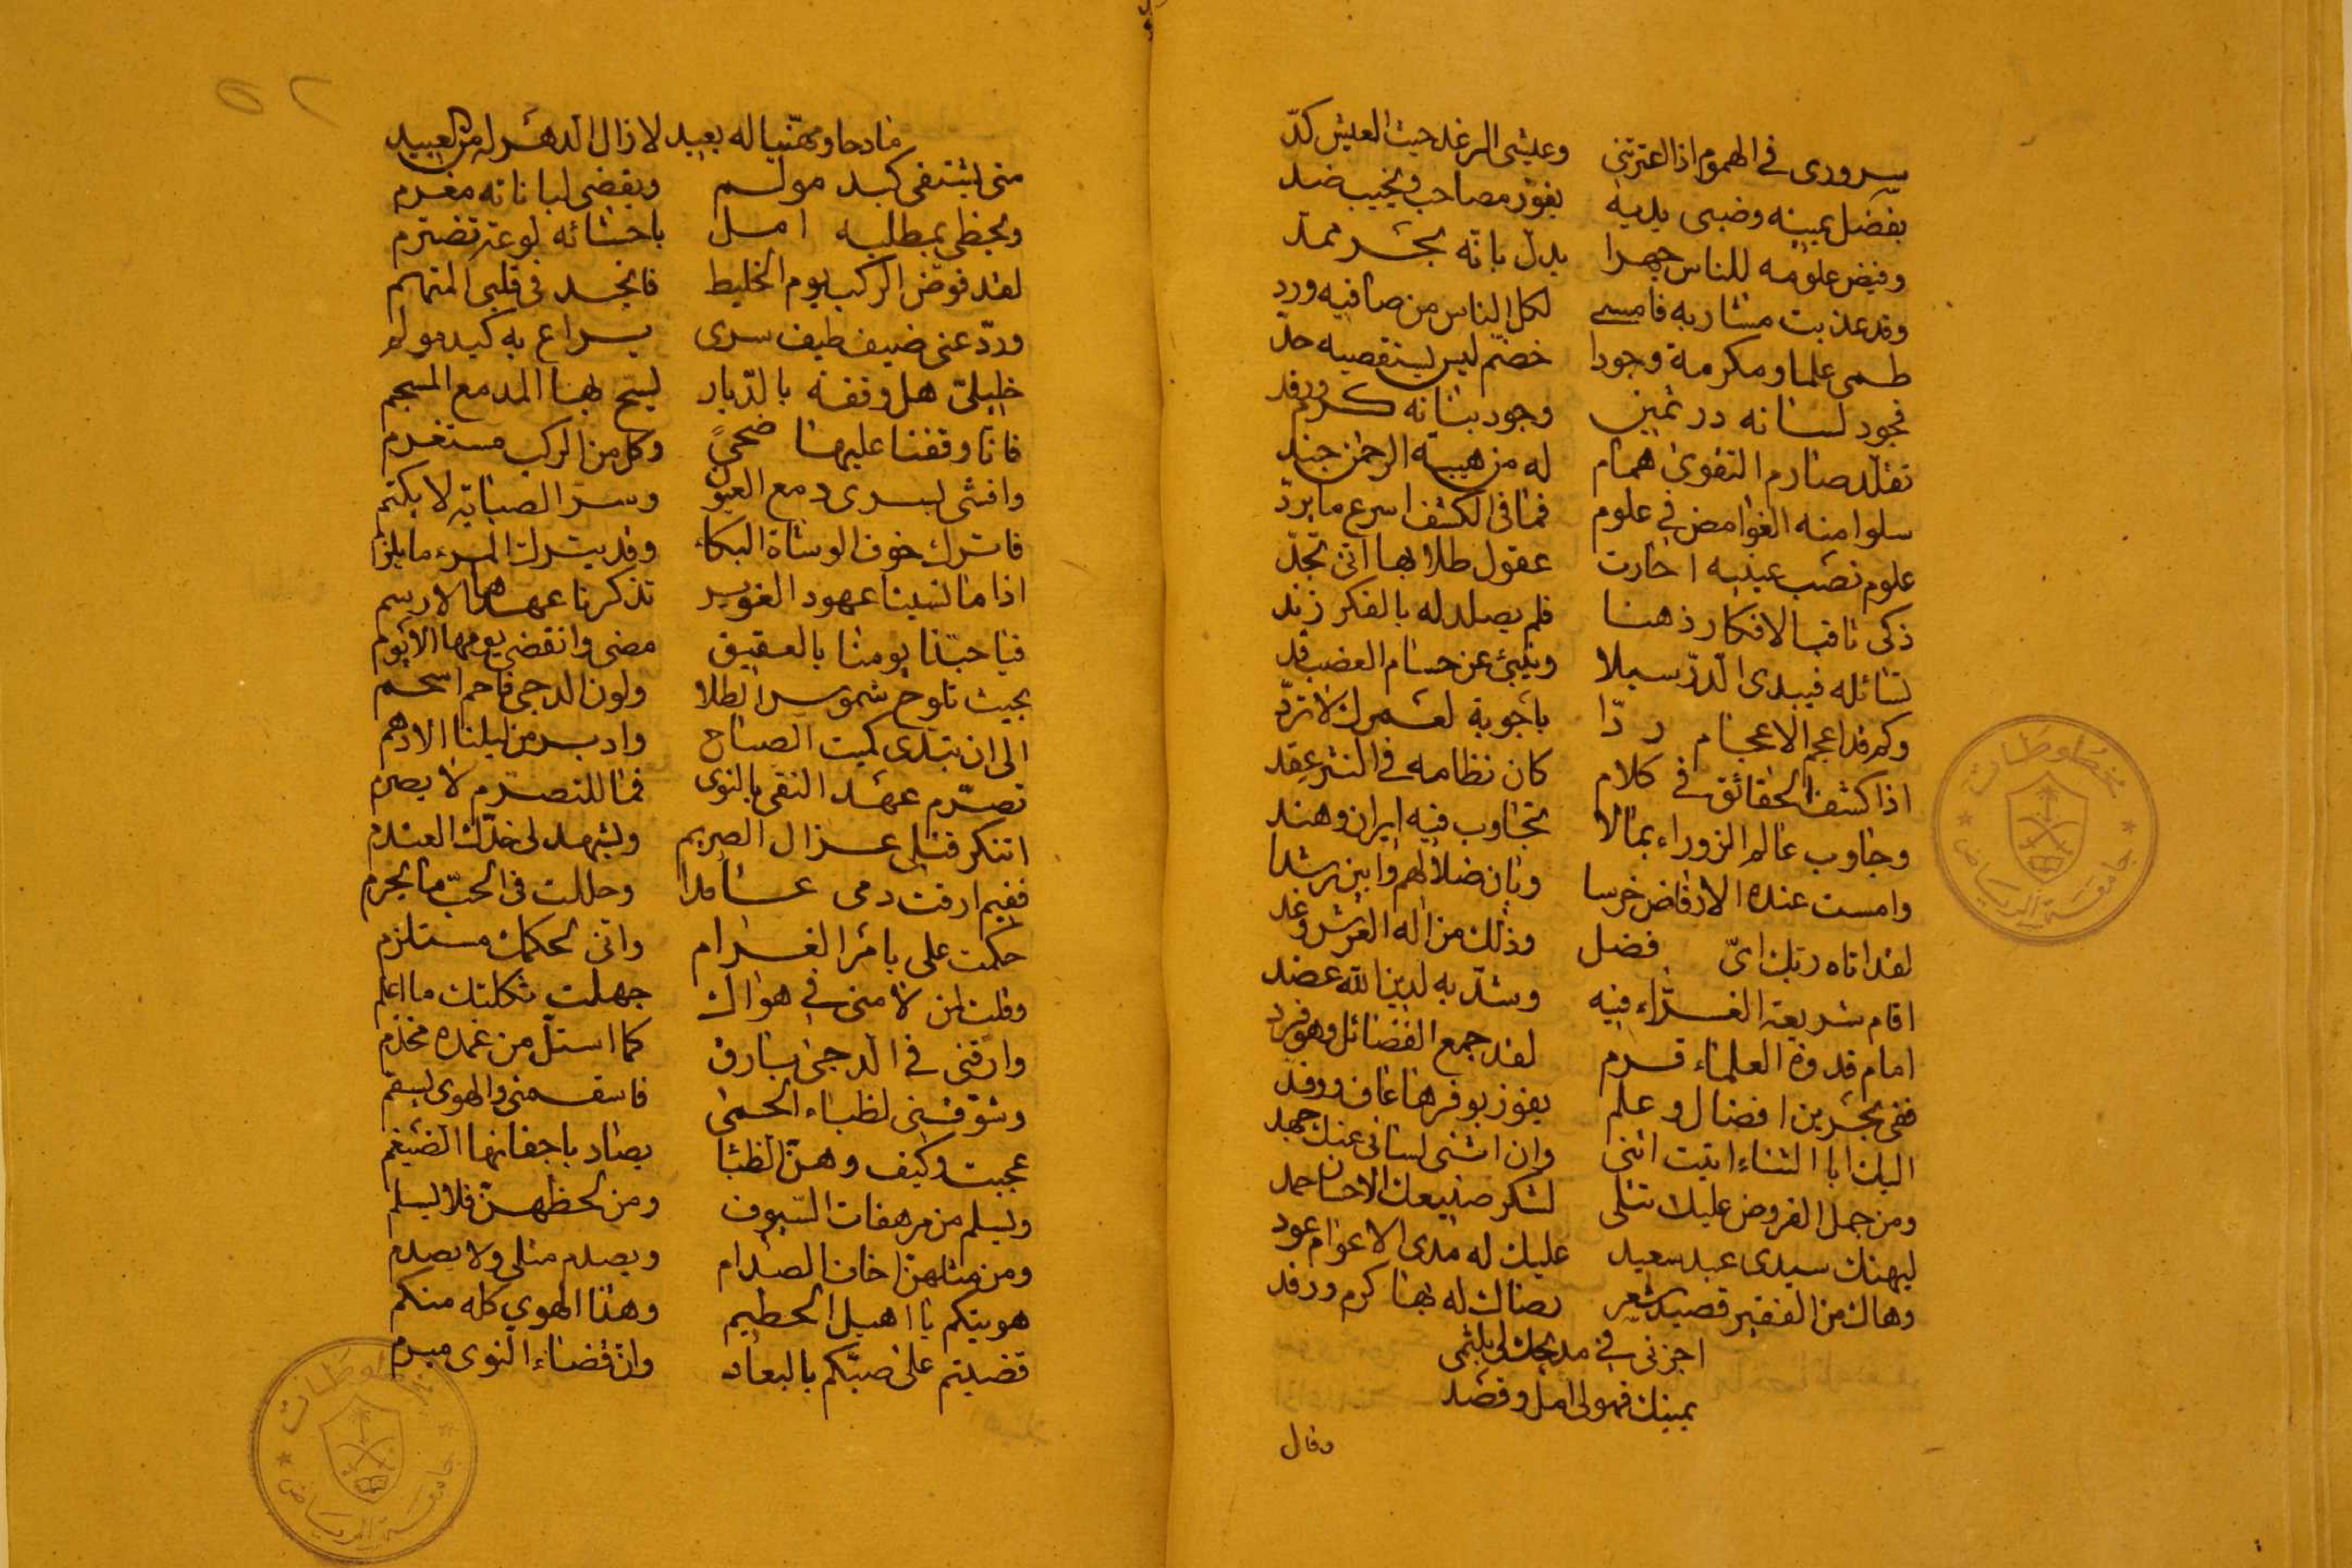 سرورى فى الهموم اذا اعترتنى وعيشى الرغد حيث العيش كدّ
بفضل يمينه وضبى يديه يفوز مصاحب ويخيب ضد
وفيض علومه للناس جهرا يدل بانه بحر ممدّ
وقد عذبت مشاربه فامسى لكل الناس من صافيه ورد
طمى علما ومكرمة وجودا خضم ليس يستقصيه حد
فجود لسانه در ثمين وجود بنانه كرم ورفد
تقلد صارم التقوى همام له من هيبة الرحمن جند
سلوا منه الغوامض فى علوم فما فى الكشف اسرع ما يردّ
علوم نصب عينيه احارت عقول طلابها انى تجدّ
ذكى ثاقب الافكار ذهنا فلم يصلد له بالفكر زند
تسائله فيبدى الدرّ سيلا وينبئ عن حسام العضب قد
وكم قد اعجم الاعجام ردّا باجوبة لعمرك لا تردّ
اذا كشف الحقائق فى كلام كان نظامه فى النثر عقد
وجاوب عالم الزوراء بما لا تجاوب فيه ايران وهند
وامست عنده الارفاض خرسا وبان ضلالهم وابين رشد
لقد اتاه ربك اىّ فضل وذلك من اله العرش وعد
اقام شريعة الغراء فيه وشدّ به لدين الله عضد
امام قدوة العلماء قرم لقد جمع الفضائل وهو فرد
ففى بحرين افضال وعلم يفوز بوفرها عاف ووفد
اليك ابا الثناء اتيت اثنى وان اثنى لسانى عنك جهد
ومن جمل الفروض عليك تتلى لشكر صنيعك الاحسان حمد
ليهنك سيدى عيد سعيد عليك له مدى الاعوام عود
وهاك من الفقير قصيد شعر رضاك له بها كرم ورفد
اجزنى فى مديحك لى بلثمى
يمينك فهو لى امل وقصد
وقال
مادحا ومهنيا له بعيد لا زال الدهر له من العبيد
متى يشتفى كبد مولم ويقضى لباناته مغرم
ويحظى بمطلبه امل باحشائه لوعة تضرم
لقد قوّض الركب يوم الخليط فانجد فى قلبى المتهم
وردّ عنى ضيف طيف سرى يراع به كبد مولم
خليلىّ هل وقفة بالديار ليسح بها المدمع المسجم
فانا وقفنا عليها ضحىً وكل من الركب مستغرم
وافشى لسرى دمع العيون وسر الصبابة لا يكتم
فاترك خوف الوشاة البكاء وقد يترك المرء ما يلزم
اذا ما نسينا عهود الغوير تذكرنا عهدها الارسم
فيا حبّذا يومنا بالعقيق مضى وانقضى يومها الايوم
بحيث تلوح شموس الطلا ولون الدجى فاحم اسحم
الى ان تبدى كميت الصباح وادبر من ليلنا الادهم
تصرّم عهد النقى بالنوى فما للتصرّم لا يصرم
اتنكر قتلى غزال الصريم ويشهد لى خدّك العندم
ففيم ارقت دمى عامدا وحللت فى الحبّ ما يحرم
حكمت على بامر الغرام وانى لحكمك مستلزم
وقلت لمن لامنى فى هواك جهلت ثكلتك ما اعلم
وارقنى فى الدجى بارق كما استلّ من غمده مخذم
وشوّقنى لظباء الحمى فاسقمنى والهوى يسقم
عجبت وكيف وهنّ الظبا يصاد باجفانها الضيغم
ويسلم من مرهفات السيوف ومن لحظهنّ فلا يسلم
ومن مثلهنّ اخاف الصدام ويصدم مثلى ولا يصدم
هويتكم يا اهيل الحطيم وهذا الهوى كله منكم
قضيتم على صبّكم بالبعاد وان قضاء النوى مبرم
٢٥
مخطوطات
جامعة الرياض